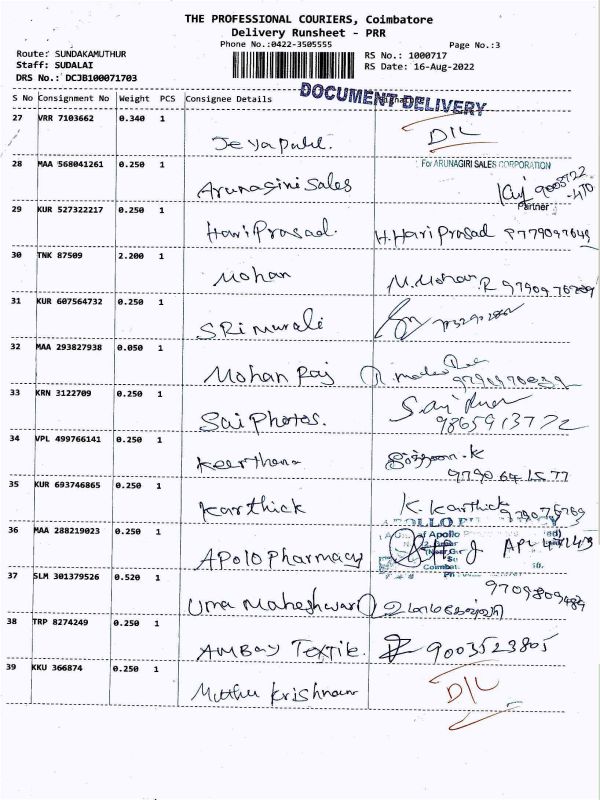 THE PROFESSIONAL COURIERS, Coimbatore
Delivery Runsheet - PRR
Phone No.:0422-3505555
Page No.:3
Route: SUNDAKAMUTHUR
RS No.: 1000717
Staff: SUDALAI
RS Date: 16-Aug-2022
DRS No.: DCJB100071703
DOCUMENT DELIVERY
S No Consignment No Weight PCS Consignee Details
27 VRR 7103662 0.340 1
D/L
Jeyapaul.
28 MAA 568041261 0.250 1
For ARUNAGIRI SALES CORPORATION
Arunagiri Sales
Partner
29 KUR 527322217 0.250 1
Hari Prasad. H.Hari Prasad
30 TNK 87509 2.200 1
Mohan M.Mohan.R
31 KUR 607564732 0.250 1
SRi murali
32 MAA 293827938 0.050 1
Mohan Raj
33 KRN 3122709 0.250 1
Sai Photos.
9865913772
34 VPL 499766141 0.250 1
Keerthana
9790641577
35 KUR 693746865 0.250 1
Karthick K.Karthick
36 MAA 288219023 0.250 1
Apollo
APOLO Pharmacy
Coimbat
37 SLM 301379526 0.520 1
Uma Maheshwari உமாமகேஸ்வரி
38 TRP 8274249 0.250 1
AMBAY Textile. 9003523805
39 KKU 366874 0.250 1
D/L
Muthu Krishnan